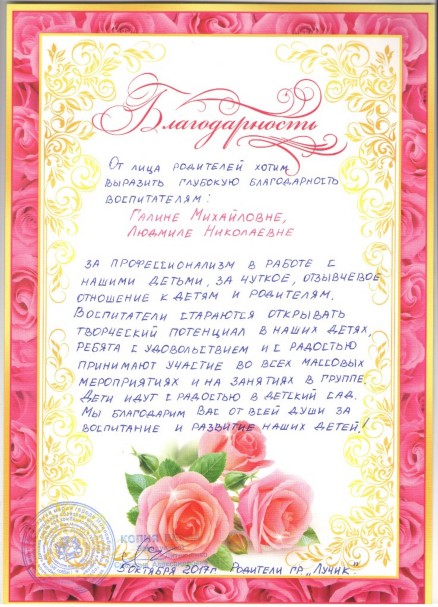 Благодарность
От лица родителей хотим
выразить глубокую благодарность
воспитателям:
Галине Михайловне,
Людмиле Николаевне
за профессионализм в работе с
нашими детьми, за чуткое, отзывчевое
отношение к детям и родителям.
Воспитатели стараются открывать
творческий потенциал в наших детях.
Ребята с удовольствием и с радостью
принимают участие во всех массовых
мероприятиях и на занятиях в группе.
Дети идут с радостью в детский сад.
Мы благодарим Вас от всей души за
воспитание и развитие наших детей!
КОПИЯ
5 октября 2017г Родители гр. „Лучик"